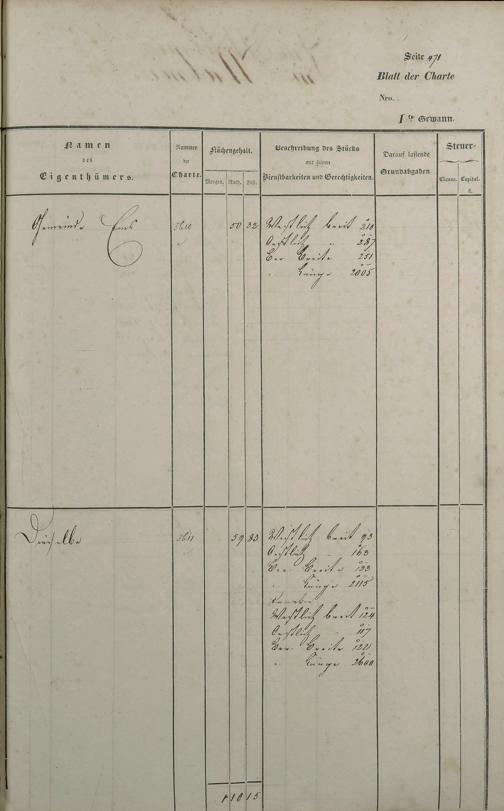 Seite 471
Blatt der Charte
Nro.
I te Gewann.
Namen des Eigenthümers.
Nummer der Charte.
Flächengehalt.
Morgen. Ruth. Fuß.
Beschreibung des Stücks mit seinen Dienstbarkeiten und Gerechtigkeiten.
Darauf lastende Grundabgaben.
Steuer-
Classe. Capital. fl.
Gemeinde Ems 50 32 Westlich breit 210
Oestlich " 287
Ber Breite 251
" Länge 2005
Dieselbe 59 83 Westlich breit 93
Oestlich 163
Ber Breite 133
" Länge 2115
Westlich breit 124
Oestlich 117
Ber Breite
" Länge 2600
1 10 15